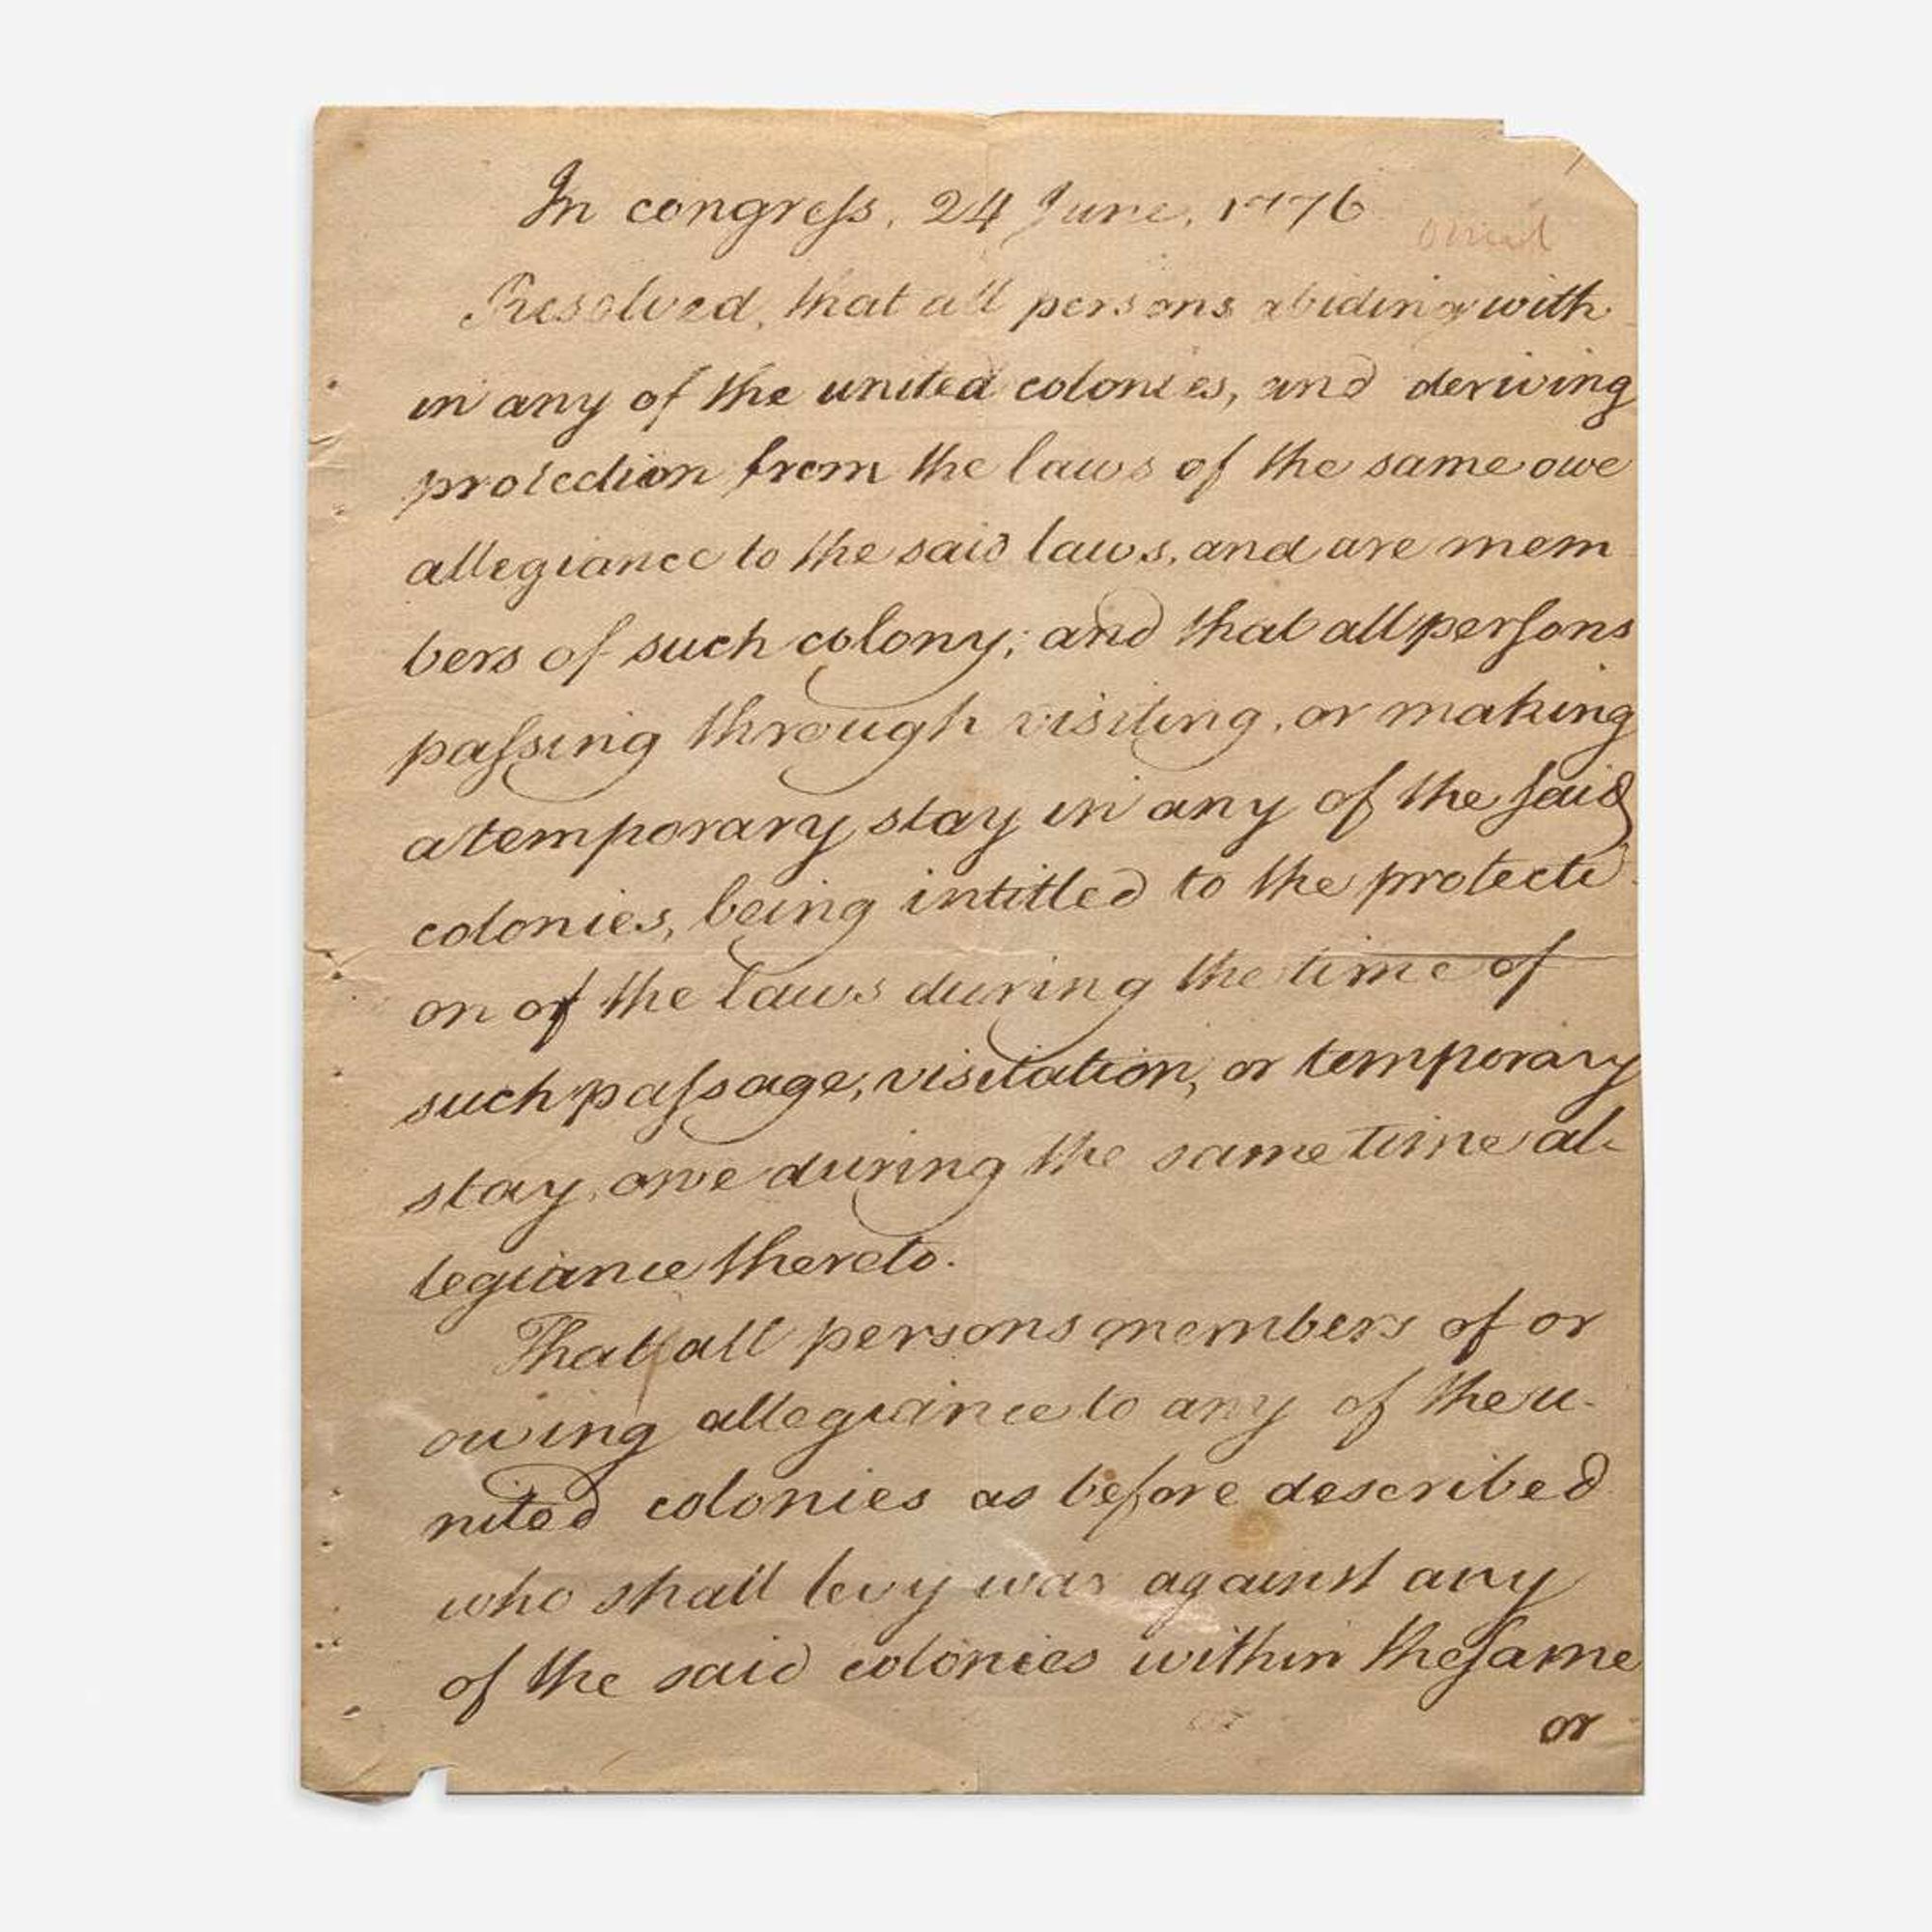 In congreſs, 24 June, 1776
omit
Resolved, that all persons abiding with
in any of the united colonies, and deriving
protection from the laws of the same owe
allegiance to the said laws, and are mem
bers of such colony; and that all perſons
paſsing through visiting, or making
a temporary stay in any of the ſaid
colonies, being intitled to the protecti
on of the laws during the time of
such paſsage, visitation, or temporary
stay, owe during the same time al-
legiance thereto.
That all persons members of or
owing allegiance to any of the u-
nited colonies as before described
who shall levy war against any
of the said colonies within the ſame
or